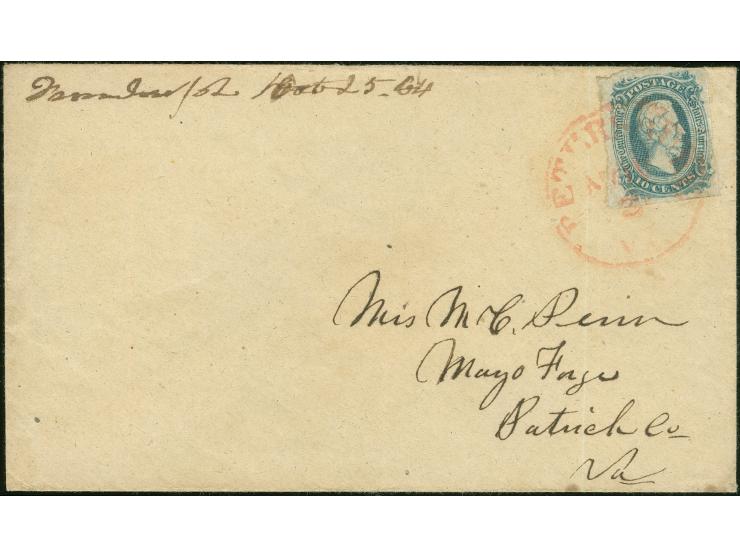 Oct 25. 64
POSTAGE
10 CENTS
PETER
VA
Mis M. C. Penn
Mayo Forge
Patrick Co
Va